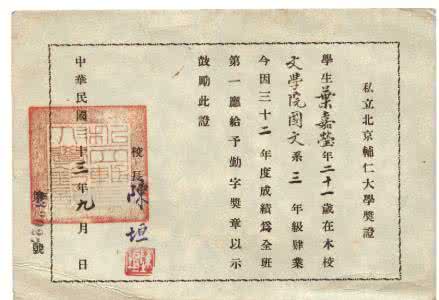 私立北京輔仁大學獎證
學生葉嘉瑩年二十一歲在本校
文學院國文系三年級肄業
今因三十二年度成績爲全班
第一應給予勤字獎章以示
鼓勵此證
校長陳垣
中華民國十三年九月 日
號